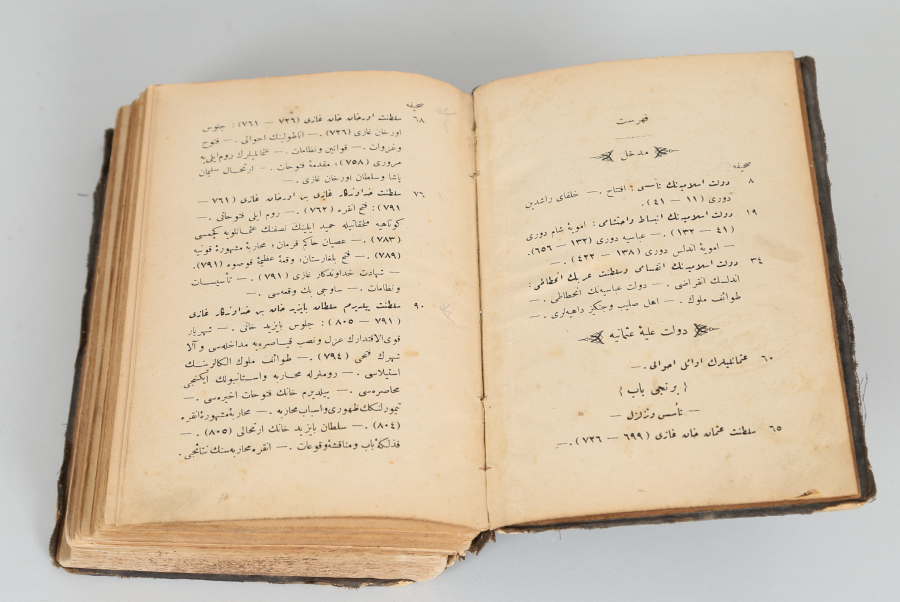 فهرست
مدخل
صحیفه
٨ دولت اسلامیه‌نك تأسسی؛ افتتاح .— خلفای راشدین
دوری (١١ — ٤١).
١٩ دولت اسلامیه‌نك انبساط واحتشامی: امویهٔ شام دوری
(٤١ — ١٣٢) .— عباسیه دوری (١٣٢ — ٦٥٦).
— امویهٔ اندلس دوری (١٣٨ — ٤٢٢) .—
٣٤ دولت اسلامیه‌نك انقسامی وسلطنت عربك انحطاطی:
اندلسك انقراضی .— دولت عباسیه‌نك انحطاطی .—
طوائف ملوك .— اهل صلیب وجنكیز داهیه‌لری .—
دولت علیهٔ عثمانیه
٦٠ عثمانلیلرك اوائل احوالی .—
{برنجی باب}
— تأسس وتزلزل —
٦٥ سلطنت عثمان خان غازی (٦٩٩ — ٧٢٦) .—
صحیفه
٦٨ سلطنت اورخان خان غازی (٧٢٦ — ٧٦١): جلوس
اورخان غازی (٧٢٦) .— اناطولینك احوالی .— فتوح
وغزوات .— قوانین ونظامات .— عثمانلیلرك روم‌ایلی‌یه
مروری (٧٥٨)، مقدمهٔ فتوحات .— ارتحال سلیمان
پاشا وسلطان اورخان غازی .—
٧٦ سلطنت خداوندكار غازی بن اورخان غازی (٧٦١ —
٧٩١): فتح انقره (٧٦٢) .— روم ایلی فتوحاتی .—
كوتاهیه ملحقاتیله حمید ایلینك نصفنك عثمانلویه كچمسی
(٧٨٣) .— عصیان حاكم قرمان، محاربهٔ مشهورهٔ قونیه
(٧٨٩) .— فتح بلغارستان، وقعهٔ عظیمهٔ قوصوه (٧٩١).
— شهادت خداوندكار غازی (٧٩١) .— تأسیسات
ونظامات .— ساوجی بك وقعه‌سی .—
٩٠ سلطنت ییلدیرم سلطان بایزید خان بن خداوندكار غازی
(٧٩١ — ٨٠٥): جلوس بایزید خانی .— شهریار
قوی‌الاقتدارك عزل ونصب قیاصره‌یه مداخله‌سی و آلا
شهرك فتحی (٧٩٤) .— طوائف ملوك اكثرینك
استیلاسی .— روملرله محاربه واستانبولك ایكنجی
محاصره‌سی .— ییلدیرم خانك فتوحات اخیره‌سی .—
تیمورلنكك ظهوری واسباب محاربه .— محاربهٔ مشهورهٔ انقره
(٨٠٤) .— سلطان بایزید خانك ارتحالی (٨٠٥) .—
فذلكهٔ باب ومناقشهٔ وقوعات .— انقره محاربه‌سنك نتائجی .